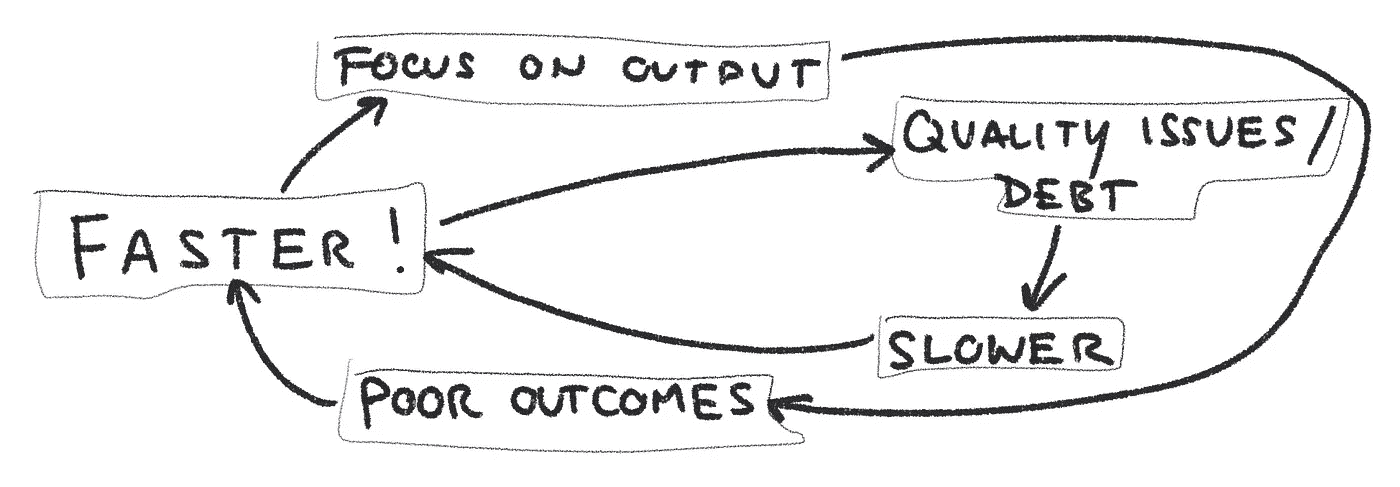 FOCUS ON OUTPUT
QUALITY ISSUES/
DEBT
FASTER!
SLOWER
POOR OUTCOMES